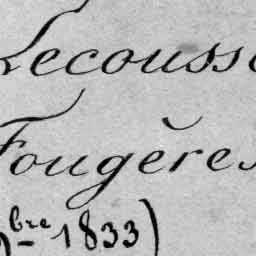 Lecousse
Fougères
bre 1833)